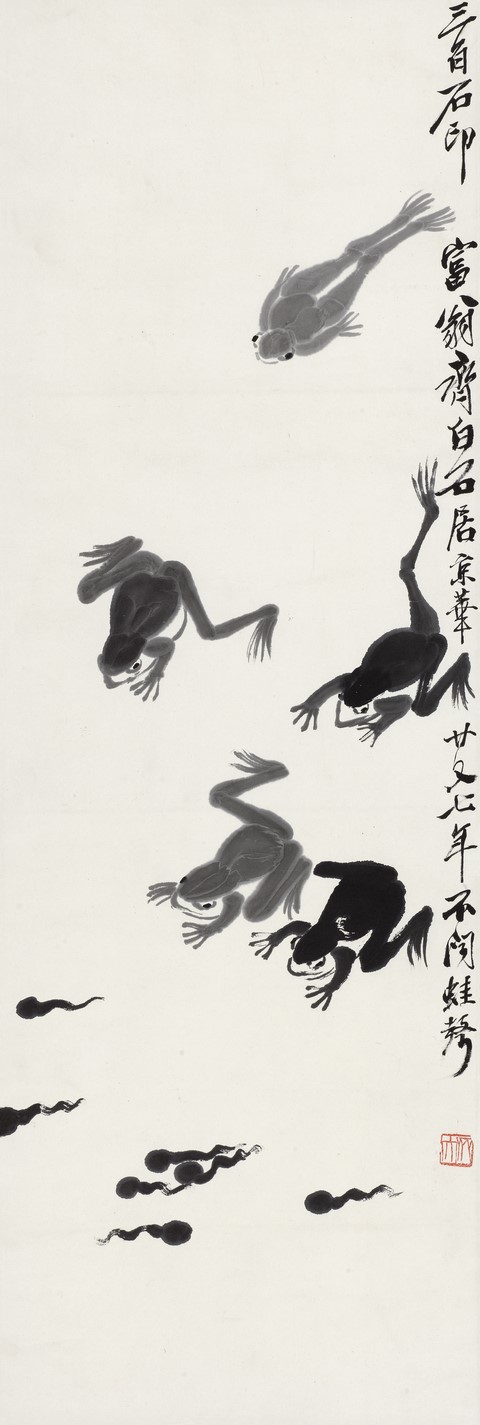 三百石印富翁齊白石居京華廿又七年不聞蛙聲